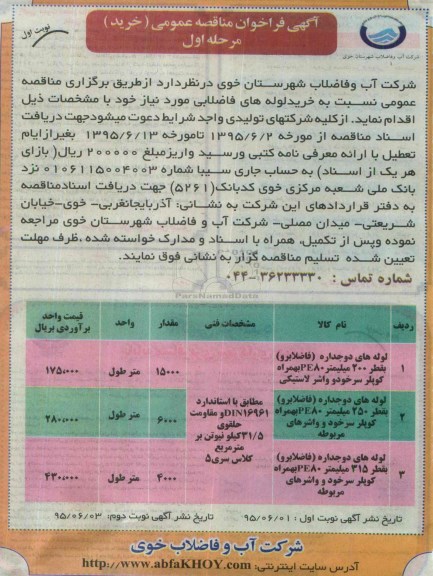 آگهی فراخوان مناقصه عمومی (خرید)
مرحله اول
نوبت اول
شرکت آب وفاضلاب شهرستان خوی
شرکت آب وفاضلاب شهرستان خوی درنظردارد ازطریق برگزاری مناقصه
عمومی نسبت به خریدلوله های فاضلابی مورد نیاز خود با مشخصات ذیل
اقدام نماید. ازکلیه شرکتهای تولیدی واجد شرایط دعوت میشودجهت دریافت
اسناد مناقصه از مورخه ۱۳۹۵/۶/۲ تامورخه ۱۳۹۵/۶/۱۳ بغیرازایام
تعطیل با ارائه معرفی نامه کتبی ورسید واریزمبلغ ۲۰۰۰۰۰ ریال( بازای
هر یک از اسناد) به حساب جاری سیبا شماره ۰۱۰۶۱۱۵۰۰۴۰۰۳ نزد
بانک ملی شعبه مرکزی خوی کدبانک(۵۲۶۱) جهت دریافت اسنادمناقصه
به دفتر قراردادهای این شرکت به نشانی: آذربایجانغربی- خوی-خیابان
شریعتی- میدان مصلی- شرکت آب و فاضلاب شهرستان خوی مراجعه
نموده وپس از تکمیل، همراه با اسناد و مدارک خواسته شده ،ظرف مهلت
تعیین شده تسلیم مناقصه گزار به نشانی فوق نمایند.
شماره تماس : ۳۶۲۳۳۳۳۰-۰۴۴
ParsNamadData
ردیف
نام کالا
مشخصات فنی
مقدار
واحد
قیمت واحد
برآوردی بریال
۱
لوله های دوجداره (فاضلابرو)
بقطر ۲۰۰ میلیمتر PE۸۰ بهمراه
کوپلر سرخودو واشر لاستیکی
۱۵۰۰۰
متر طول
۱۷۵۰۰۰
مطابق با استاندارد
DIN۱۶۹۶۱ و مقاومت
حلقوی
۳۱/۵ کیلو نیوتن بر
مترمربع
کلاس سری۵
۲
لوله های دوجداره (فاضلابرو)
بقطر ۲۵۰ میلیمتر PE۸۰ بهمراه
کوپلر سرخود و واشرهای
مربوطه
۶۰۰۰
متر طول
۲۸۰۰۰۰
۳
لوله های دوجداره (فاضلابرو)
بقطر ۳۱۵ میلیمتر PE۸۰ بهمراه
کوپلر سرخود و واشرهای
مربوطه
۴۰۰۰
متر طول
۴۳۰۰۰۰
تاریخ نشر آگهی نوبت اول : ۹۵/۰۶/۰۱ تاریخ نشر آگهی نوبت دوم: ۹۵/۰۶/۰۳
شرکت آب و فاضلاب خوی
آدرس سایت اینترنتی: http://www.abfaKHOY.com